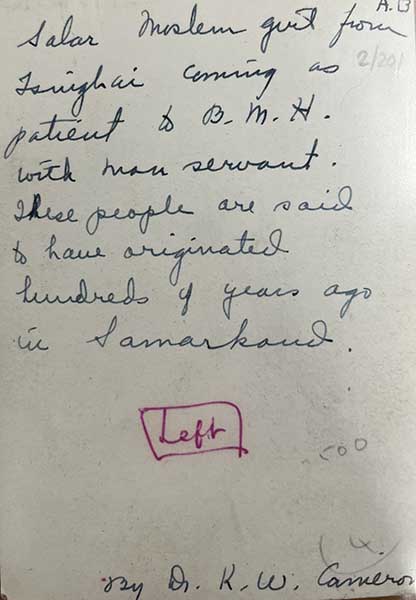 A.B
Salar Moslem girl from
Tsinghai coming as
2/201
patient to B.M.H.
with man servant.
These people are said
to have originated
hundreds of years ago
in Samarkand.
Left
500
4.
By Dr. K. W. Cameron